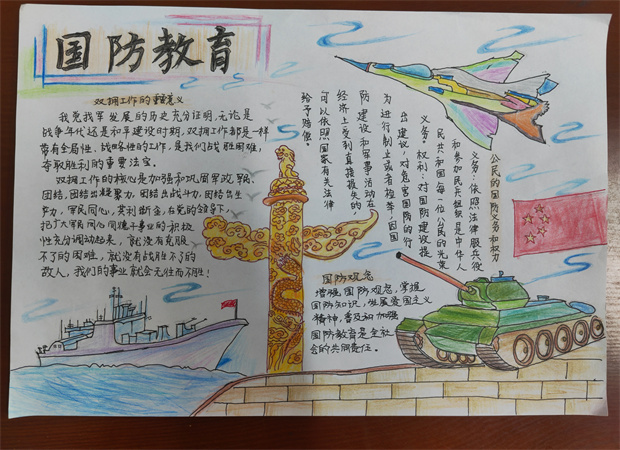 国防教育
双拥工作的重要意义
我党我军发展的历史充分证明,无论是
战争年代还是和平建设时期,双拥工作都是一样
带有全局性、战略性的工作,是我们战胜困难,
夺取胜利的重要法宝。
双拥工作的核心是加强和巩固军政、军民
团结,团结出凝聚力,团结出战斗力,团结出生
产力,军民同心,其利断金,在党的领导下,
把广大军民同心同德干事业的积极
性充分调动起来,就没有克服
不了的困难,就没有战胜不了的
敌人,我们的事业就会无往而不胜!
公民的国防义务和权力
义务:依照法律服兵役
和参加民兵组织是中华人
民共和国每一位公民的光荣
义务。权利:对国防建设提
出建议,对危害国防的行
为进行制止或者检举,因国
防建设和军事活动在
经济上受到直接损失的
可以依照国家有关法律
给予赔偿。
国防观念
增强国防观念,掌握
国防知识,发展爱国主义
精神,普及和加强
国防教育是全社
会的共同责任。